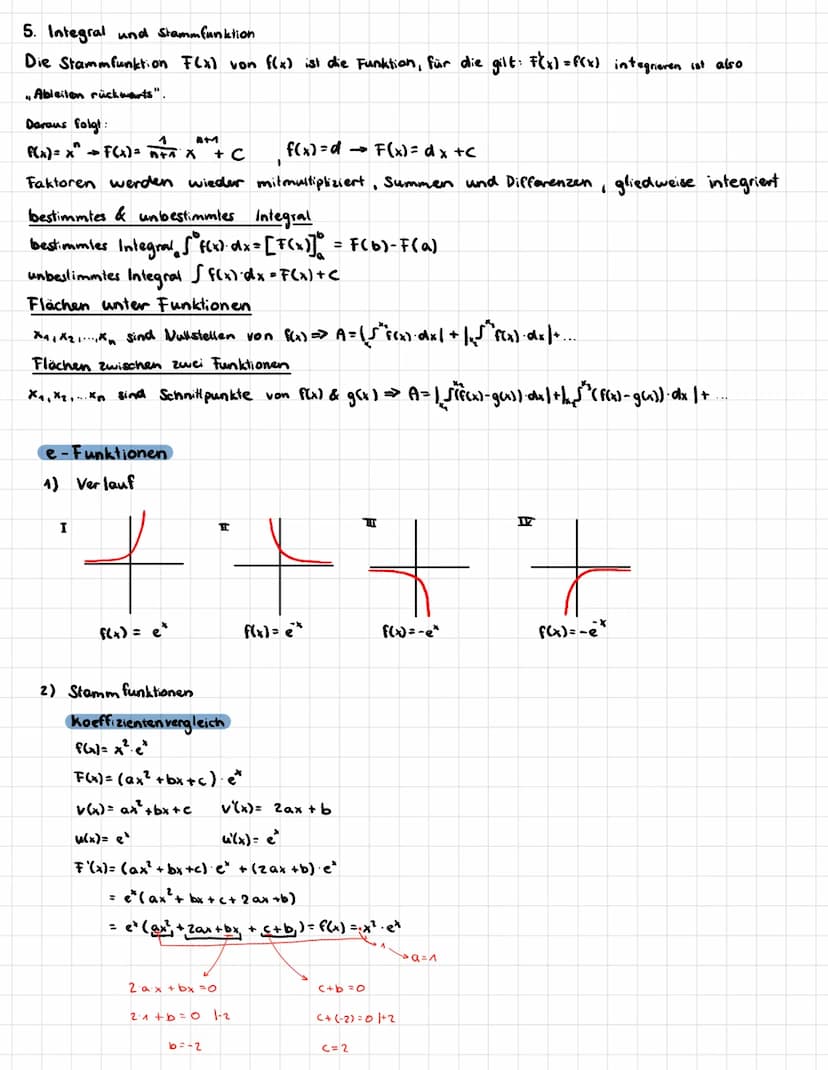 5. Integral und Stammfunktion
Die Stammfunktion F(x) von f(x) ist die Funktion, für die gilt: F'(x) = f(x) integrieren ist also
„Ableiten rückwärts".
Daraus folgt:
f(x) = xⁿ → F(x) = 1/(n+1) x^(n+1) + C , f(x) = d → F(x) = dx + C
Faktoren werden wieder mitmultipliziert, Summen und Differenzen, gliedweise integriert
bestimmtes & unbestimmtes Integral
bestimmtes Integral ₐ∫ᵇ f(x)·dx = [F(x)]ₐᵇ = F(b) - F(a)
unbestimmtes Integral ∫ f(x)·dx = F(x) + C
Flächen unter Funktionen
x₁, x₂, ..., xₙ sind Nullstellen von f(x) ⇒ A = |ₓ₁∫ˣ² f(x)·dx| + |ₓ₂∫ˣ³ f(x)·dx| + ...
Flächen zwischen zwei Funktionen
x₁, x₂, ... xₙ sind Schnittpunkte von f(x) & g(x) ⇒ A = |ₓ₁∫ˣ² (f(x)-g(x))·dx| + |ₓ₂∫ˣ³ (f(x)-g(x))·dx| + ...
e-Funktionen
1) Verlauf
I II III IV
f(x) = eˣ f(x) = e⁻ˣ f(x) = -eˣ f(x) = -e⁻ˣ
2) Stammfunktionen
Koeffizientenvergleich
f(x) = x²·eˣ
F(x) = (ax² + bx + c)·eˣ
v(x) = ax² + bx + c v'(x) = 2ax + b
u(x) = eˣ u'(x) = eˣ
F'(x) = (ax² + bx + c)·eˣ + (2ax + b)·eˣ
= eˣ (ax² + bx + c + 2ax + b)
= eˣ (ax² + 2ax + bx + c + b) = f(x) = x²·eˣ
1 → a = 1
2a·x + bx = 0 c + b = 0
2·1 + b = 0 |-2 c + (-2) = 0 |+2
b = -2 c = 2